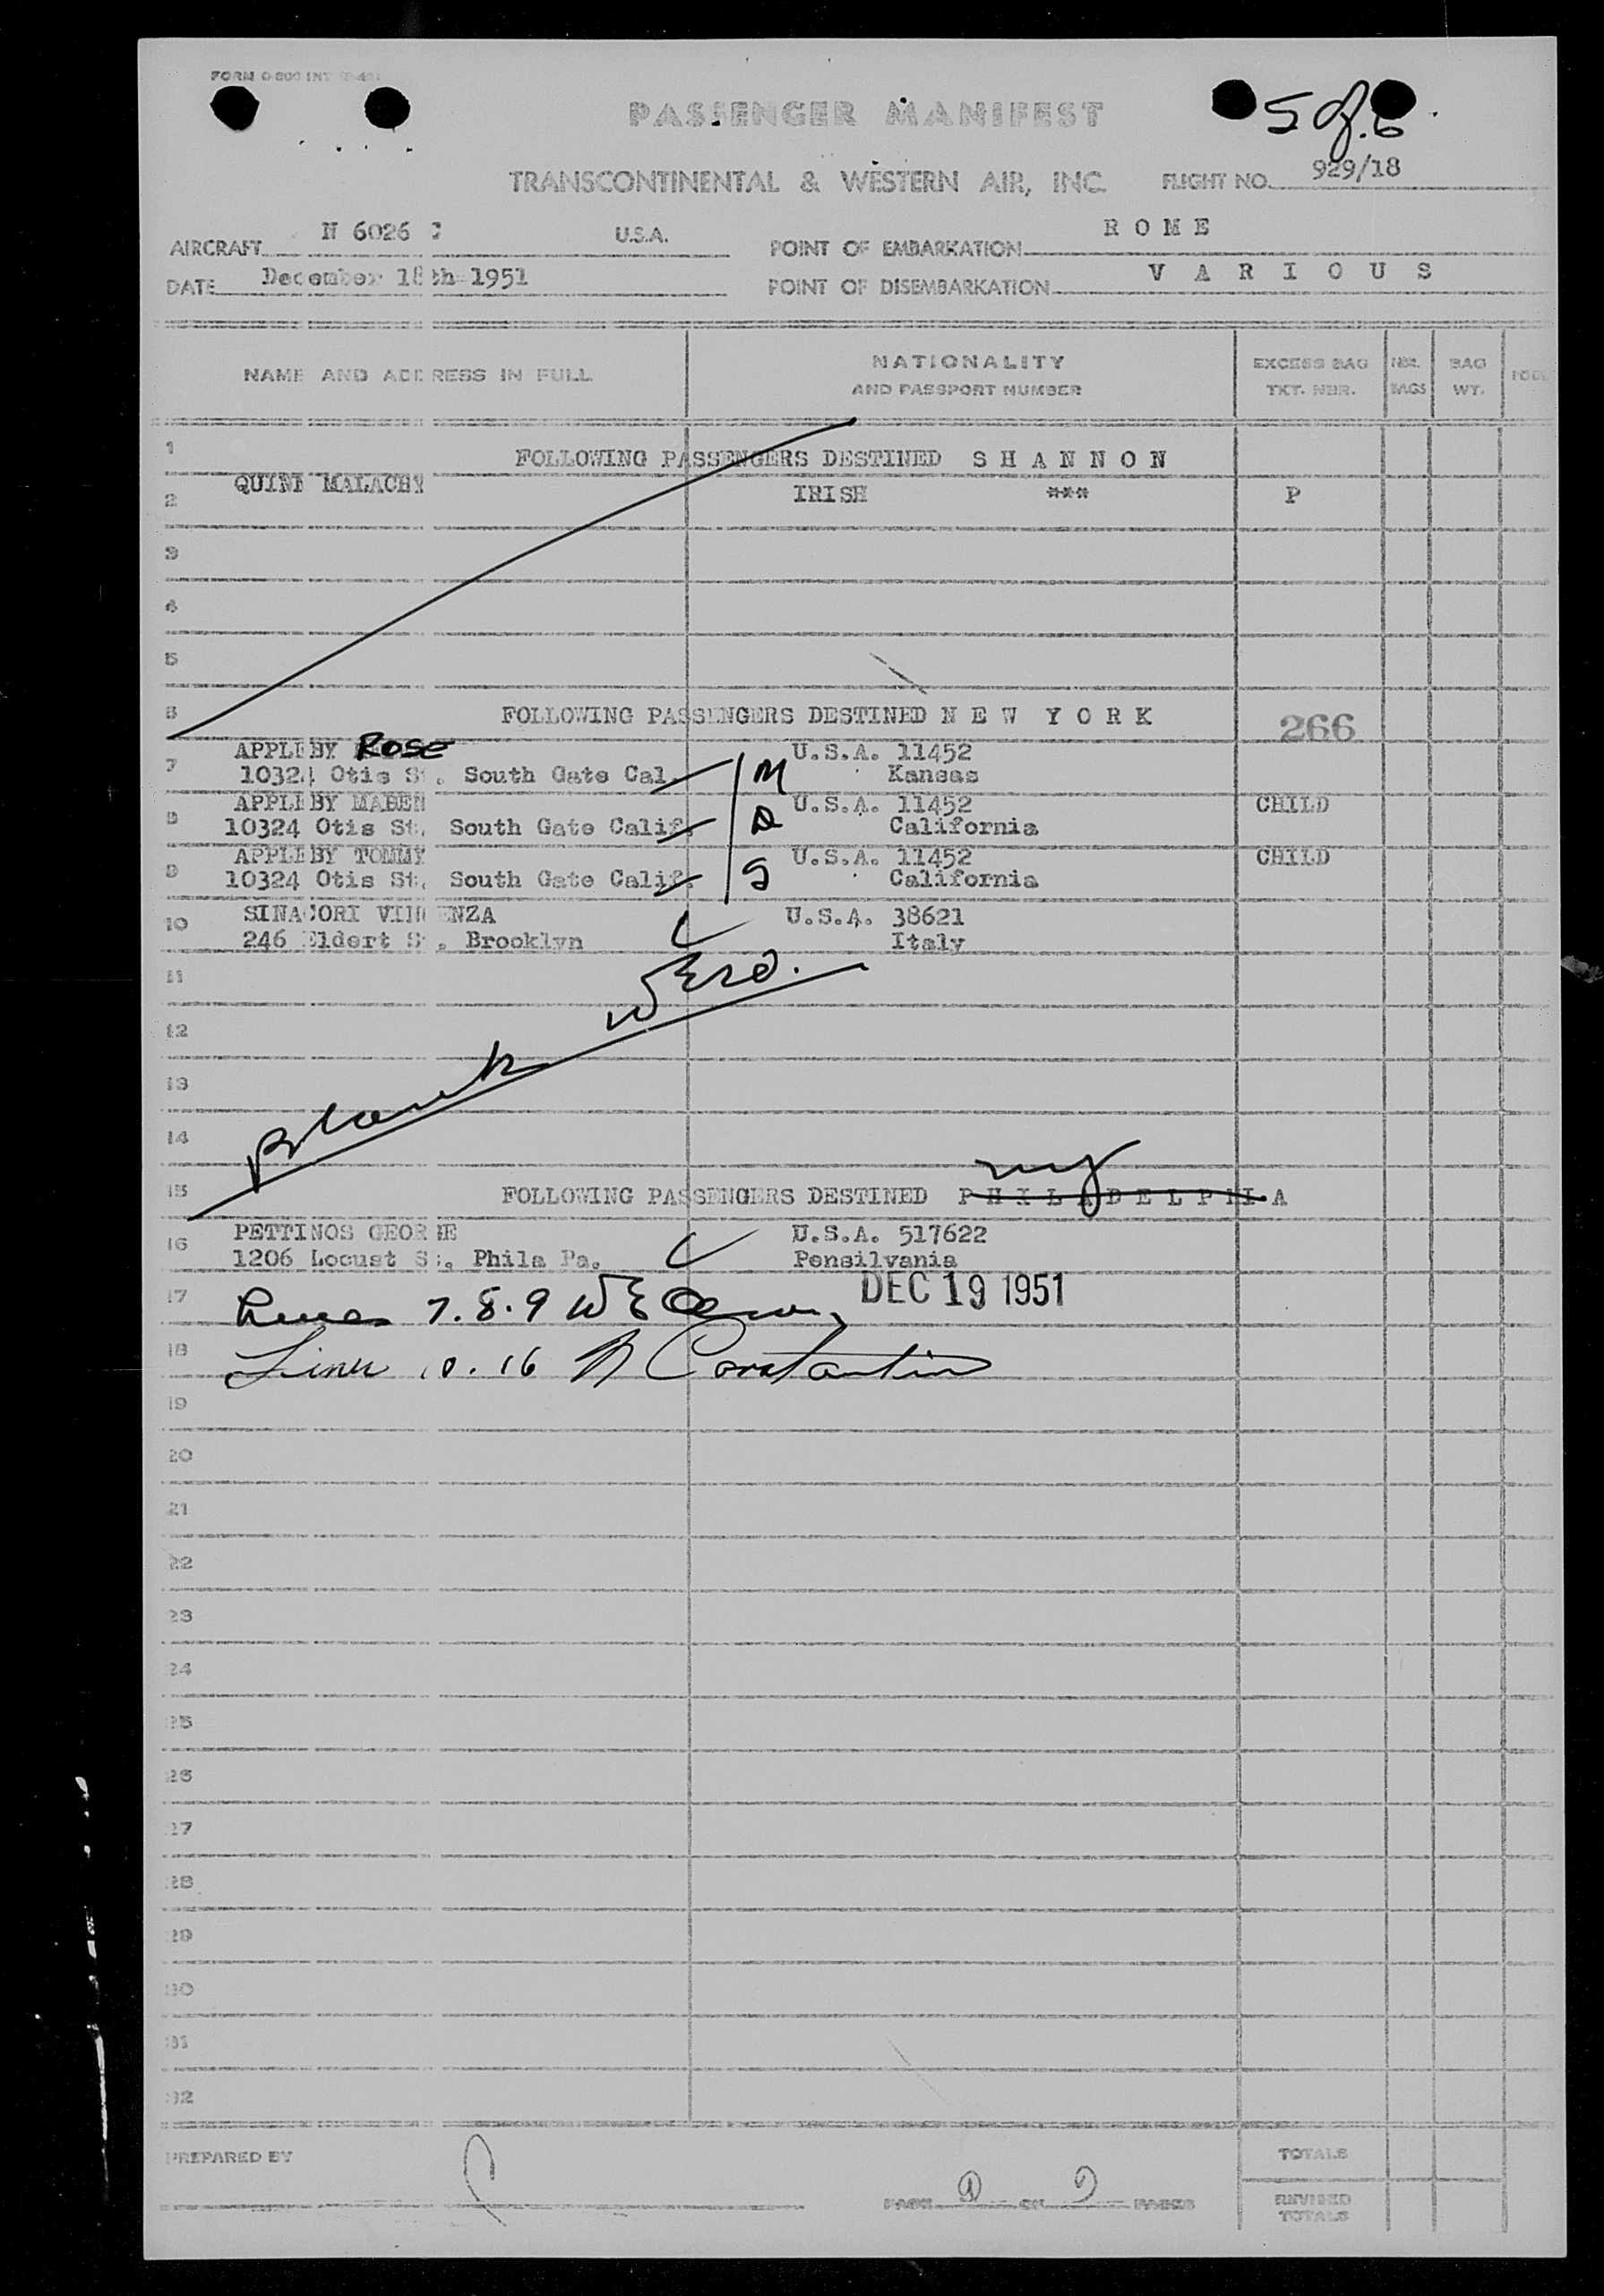 5 of 6
PASSENGER MANIFEST
TRANSCONTINENTAL & WESTERN AIR, INC. FLIGHT NO. 929/18
AIRCRAFT N 6026 C U.S.A. POINT OF EMBARKATION R O M E
DATE December 18th 1951 POINT OF DISEMBARKATION V A R I O U S
NAME AND ADDRESS IN FULL NATIONALITY AND PASSPORT NUMBER EXCESS BAG TKT. NBR. NBR. BAGS BAG WT.
1 FOLLOWING PASSENGERS DESTINED S H A N N O N
2 QUINN MALACHY IRISH *** P
3
4
5
6 FOLLOWING PASSENGERS DESTINED N E W Y O R K 266
7 APPLEBY ROSE U.S.A. 11452
10324 Otis St. South Gate Cal. M Kansas
8 APPLEBY MABEN U.S.A. 11452 CHILD
10324 Otis St. South Gate Calif. D California
9 APPLEBY TOMMY U.S.A. 11452 CHILD
10324 Otis St. South Gate Calif. S California
10 SINACORI VINCENZA U.S.A. 38621
246 Eldert St. Brooklyn Italy
11
12
13
14
blank
15 FOLLOWING PASSENGERS DESTINED P H I L A D E L P H I A
ny
16 PETTINOS GEORGE U.S.A. 517622
1206 Locust St. Phila Pa. Pensilvania
17 Lines 7.8.9 DEC 19 1951
18 Lines 10.16 Constantin
19
20
21
22
23
24
25
26
27
28
29
30
31
32
PREPARED BY TOTALS
PAGE 2 ON 2 PAGES REVISED TOTALS